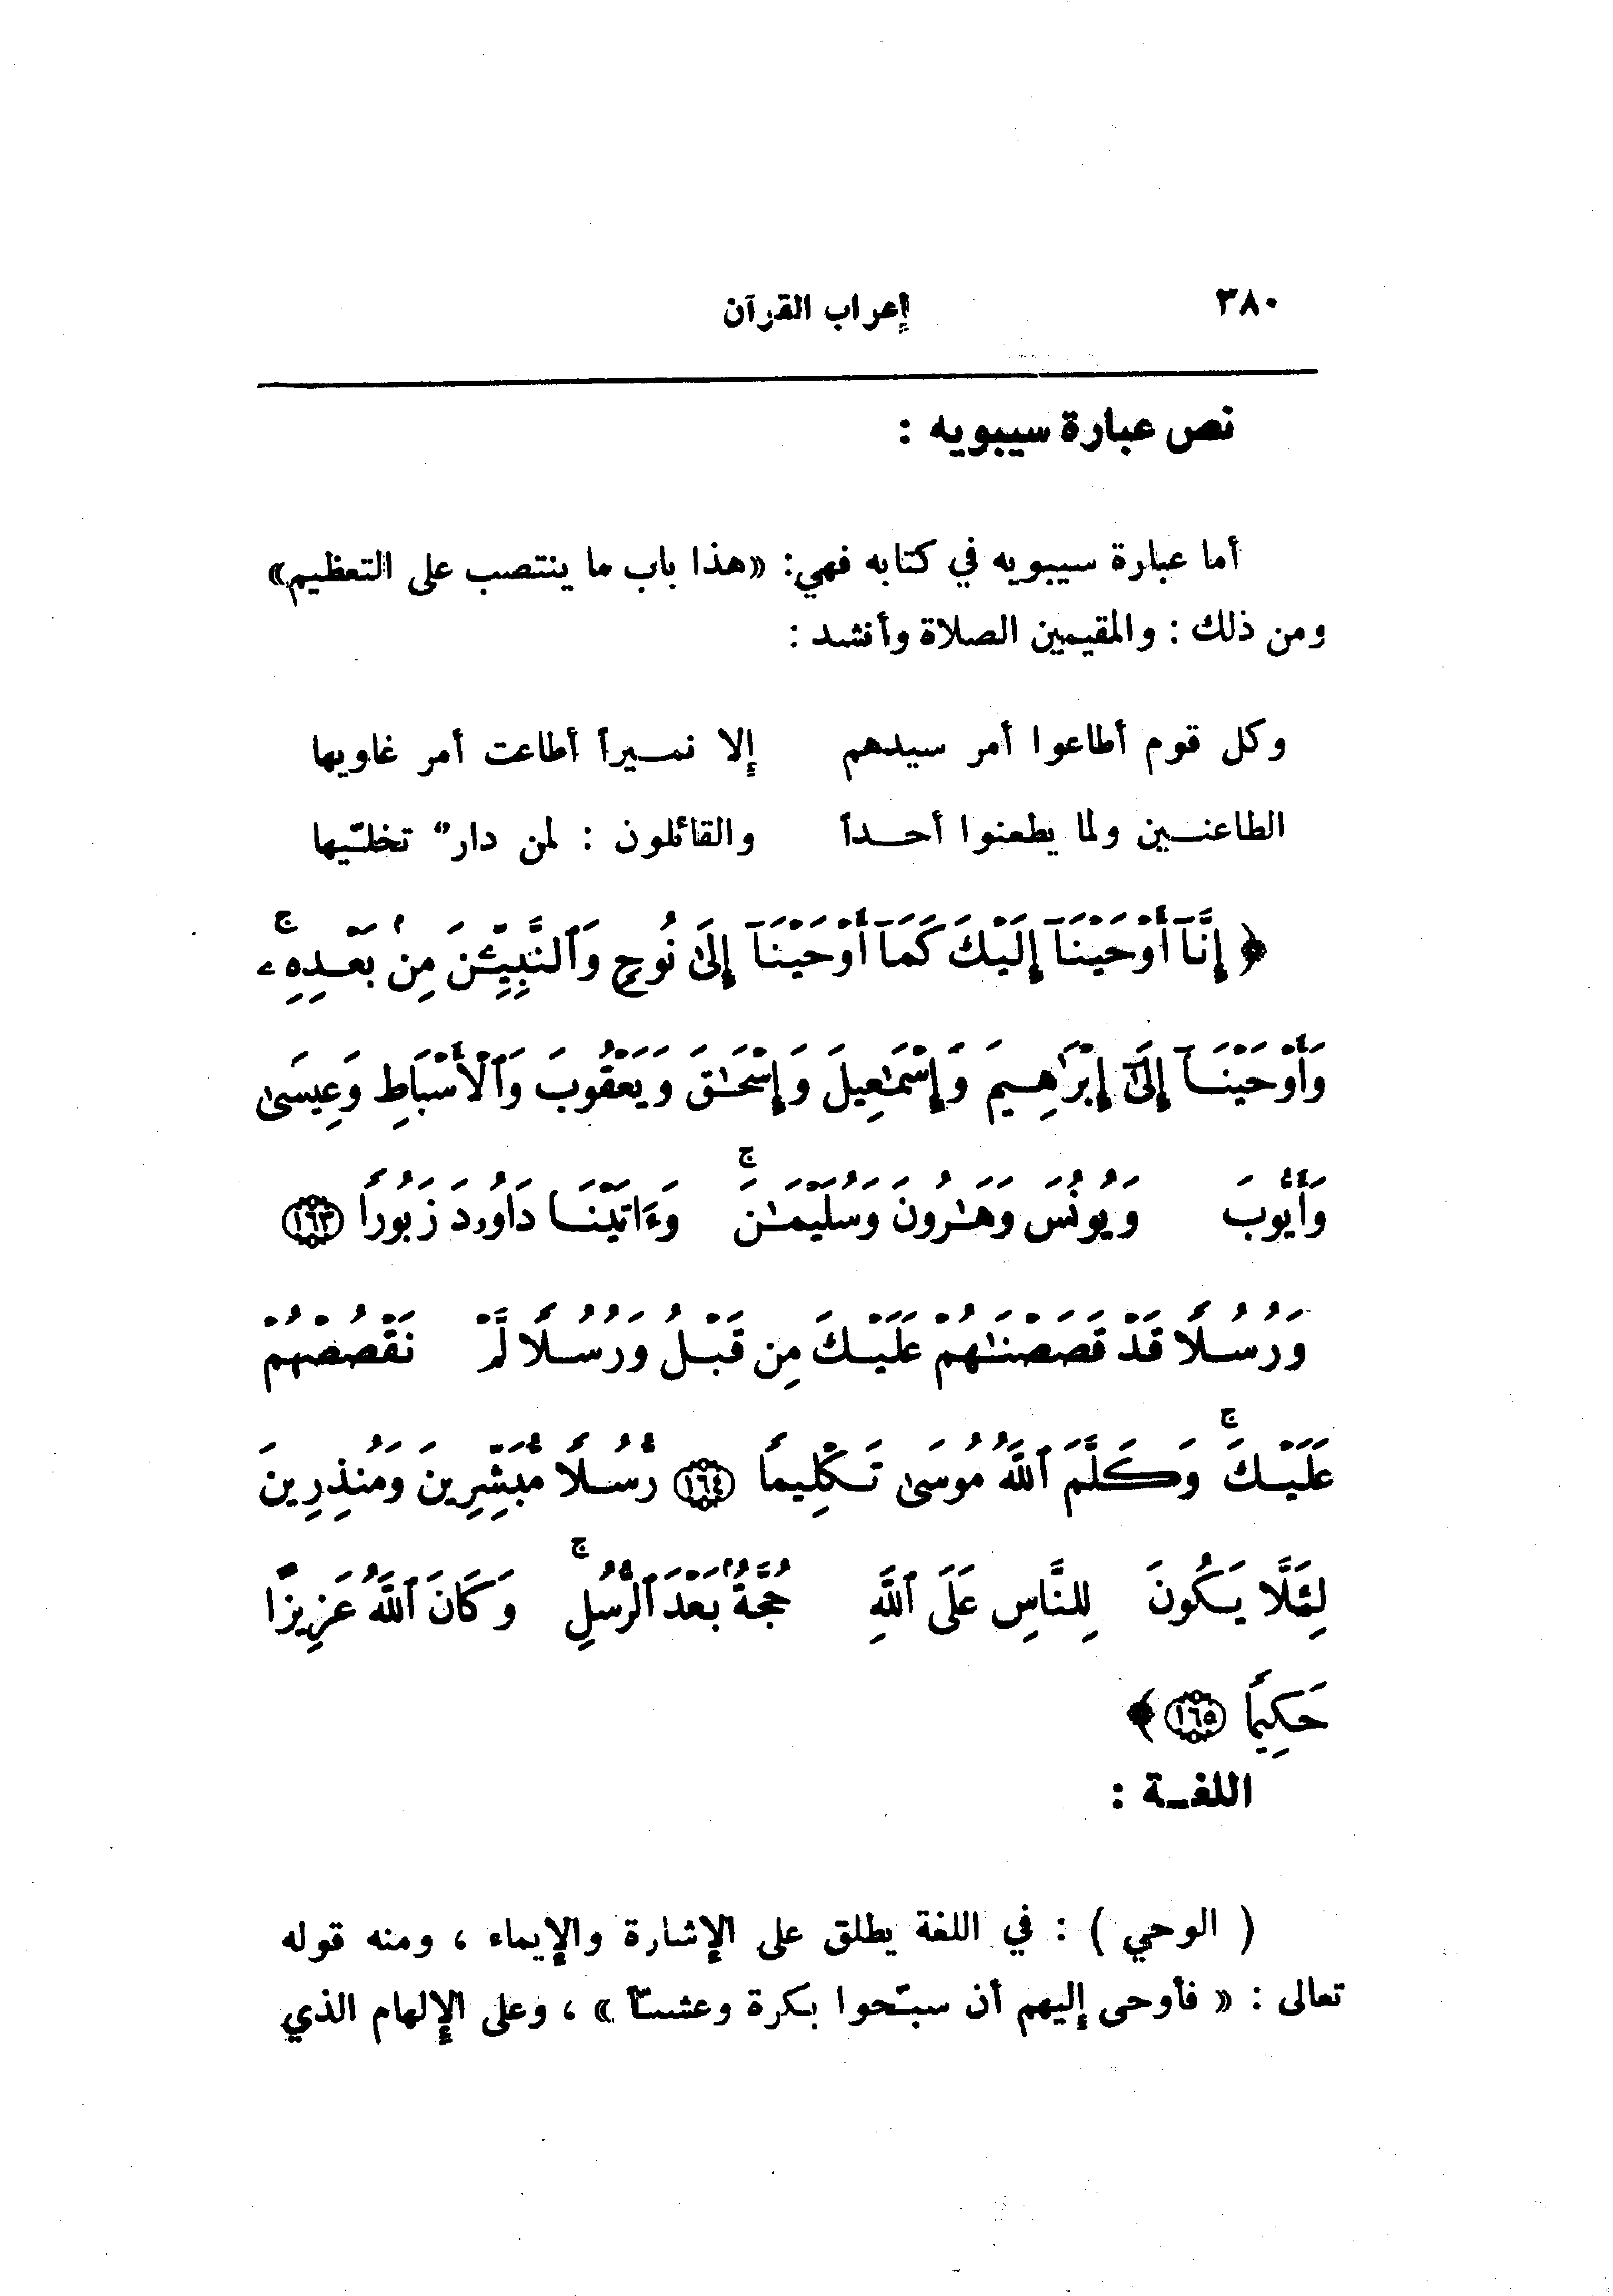 ٣٨٠ إعراب القرآن
نص عبارة سيبويه :
أما عبارة سيبويه في كتابه فهي: «هذا باب ما ينتصب على التعظيم»
ومن ذلك : والمقيمين الصلاة وأنشد :
وكل قوم أطاعوا أمر سيدهم إلا نمـيراً أطاعت أمر غاويها
الطاعنـين ولما يطعنوا أحـداً والقائلون : لمن دارٌ تخلّيها
﴿ إِنَّآ أَوْحَيْنَآ إِلَيْكَ كَمَآ أَوْحَيْنَآ إِلَىٰ نُوحٍ وَٱلنَّبِيِّـۧنَ مِنۢ بَعْدِهِۦ ۚ
وَأَوْحَيْنَآ إِلَىٰٓ إِبْرَٰهِيمَ وَإِسْمَـٰعِيلَ وَإِسْحَـٰقَ وَيَعْقُوبَ وَٱلْأَسْبَاطِ وَعِيسَىٰ
وَأَيُّوبَ وَيُونُسَ وَهَـٰرُونَ وَسُلَيْمَـٰنَ ۚ وَءَاتَيْنَا دَاوُۥدَ زَبُورًا ١٦٣
وَرُسُلًا قَدْ قَصَصْنَـٰهُمْ عَلَيْكَ مِن قَبْلُ وَرُسُلًا لَّمْ نَقْصُصْهُمْ
عَلَيْكَ ۚ وَكَلَّمَ ٱللَّهُ مُوسَىٰ تَكْلِيمًا ١٦٤ رُّسُلًا مُّبَشِّرِينَ وَمُنذِرِينَ
لِئَلَّا يَكُونَ لِلنَّاسِ عَلَى ٱللَّهِ حُجَّةٌۢ بَعْدَ ٱلرُّسُلِ ۚ وَكَانَ ٱللَّهُ عَزِيزًا
حَكِيمًا ١٦٥ ﴾
اللغـة :
( الوحي ) : في اللغة يطلق على الإشارة والإيماء ، ومنه قوله
تعالى : « فأوحى إليهم أن سبّحوا بكرة وعشيّاً » ، وعلى الإلهام الذي